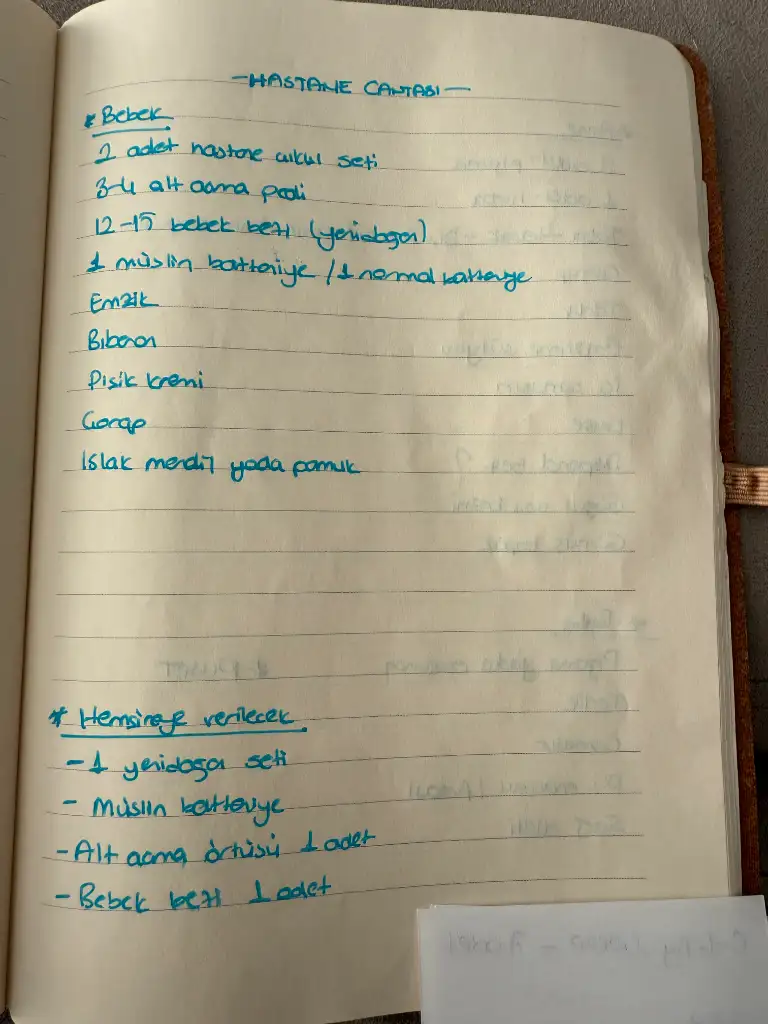 -HASTANE ÇANTASI-
* Bebek
2 adet hastane cıkıs seti
3-4 alt acma pedi
12-15 bebek bezi (yenidogan)
1 müslin battaniye / 1 normal battaniye
Emzik
Biberon
Pisik kremi
Corap
Islak mendil yada pamuk
* Hemsireye verilecek
- 1 yenidogan seti
- Müslin battaniye
- Alt acma örtüsü 1 adet
- Bebek bezi 1 adet